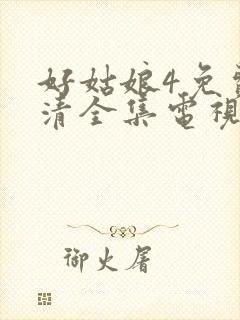 好姑娘4免費
清全集電視
御火屠